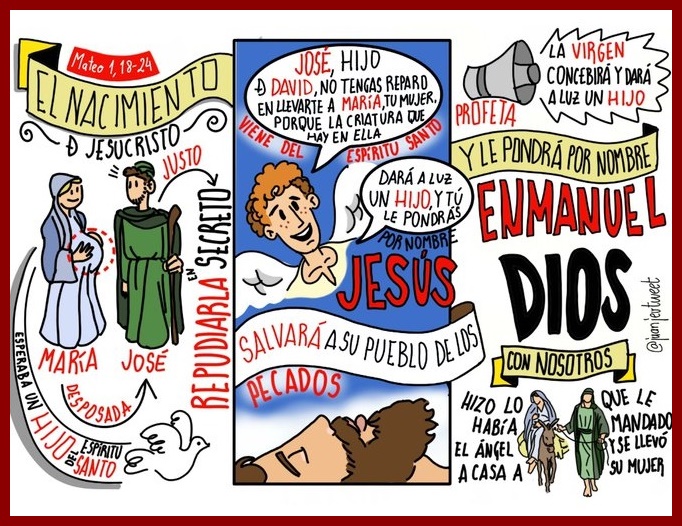 Mateo 1,18-24
EL NACIMIENTO
D JESUCRISTO
JUSTO
MARÍA
JOSÉ
DESPOSADA
ESPERABA UN
HIJO
DEL ESPÍRITU
SANTO
REPUDIARLA
EN SECRETO
JOSÉ, HIJO
D DAVID, NO TENGAS REPARO
EN LLEVARTE A MARÍA, TU MUJER,
PORQUE LA CRIATURA QUE
HAY EN ELLA
VIENE DEL ESPÍRITU SANTO
DARÁ A LUZ
UN HIJO, Y TÚ
LE PONDRÁS
POR NOMBRE
JESÚS
SALVARÁ A SU PUEBLO DE LOS
PECADOS
PROFETA
LA VIRGEN
CONCEBIRÁ Y DARÁ
A LUZ UN HIJO
Y LE PONDRÁ POR NOMBRE
ENMANUEL
DIOS
CON NOSOTROS
@juanjortweet
HIZO LO QUE LE
HABÍA MANDADO
EL ÁNGEL Y SE LLEVÓ
A CASA A SU MUJER